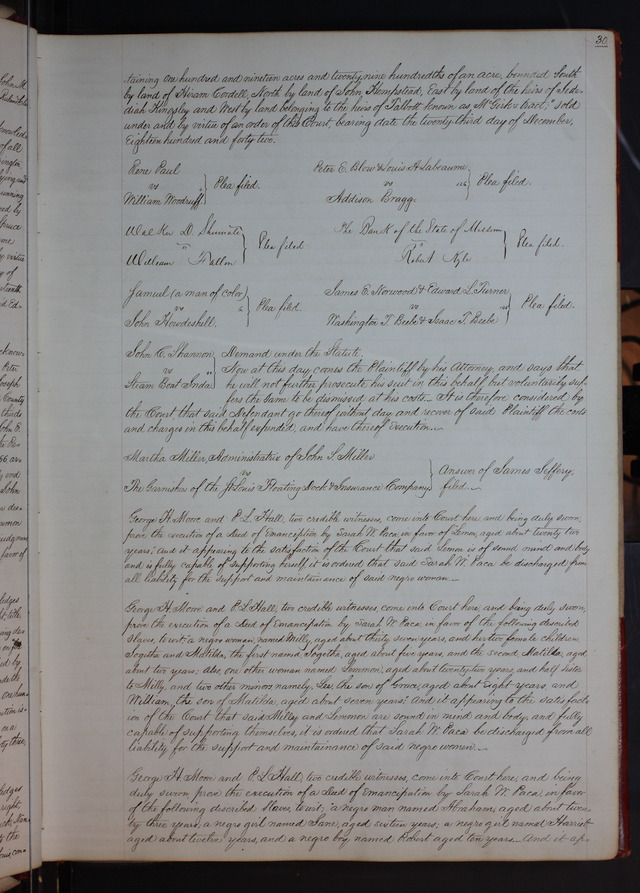 30
taining one hundred and nineteen acres and twenty nine hundredths of an acre, bounded South
by land of Hiram Cordell, North by land of John Hempstead, East by land of the heirs of Jede-
diah Kingsley and West by land belonging to the heirs of Talbott known as tract," sold
under and by virtue of an order of this Court, bearing date the twenty third day of December,
Eighteen hundred and forty two.
Rene Paul
vs } Plea filed.
William Woodruff
Peter E. Blow & Louis A Labeaume
vs 116 } Plea filed.
Addison Bragg
Walker D. Shumate
vs } Plea filed
William Fallon
The Bank of the State of Missouri
vs } Plea filed.
Robert Kyle
Samuel (a man of color)
vs 6 } Plea filed.
John Howdeshell.
James E. Norwood & Edward L. Turner
vs } Plea filed.
Washington T. Beebe & Isaac T. Beebe
John C. Shannon } Demand under the Statute.
vs Now at this day comes the Plaintiff by his Attorney and says that
Steam Boat Inda he will not further prosecute his suit in this behalf but voluntarily suf-
fers the same to be dismissed at his costs. It is therefore considered by
the Court that said Defendant go thereof without day and recover of said Plaintiff the costs
and charges in this behalf expended, and have thereof execution.
Martha Miller, Administratrix of John S. Miller
vs } Answer of James Jeffery,
The Garnishee of the St Louis Floating Dock & Insurance Company filed.
George H. Moore and P. L. Hall, two credible witnesses, come into Court here and being duly sworn,
prove the execution of a Deed of Emancipation by Sarah W. Paca in favor of Lemon, aged about twenty two
years; And it appearing to the satisfaction of the Court that said Lemon is of sound mind and body
and is fully capable of supporting herself it is ordered that said Sarah W. Paca be discharged from
all liability for the support and maintainence of said negro woman.
George H. Moore and P. L. Hall, two credible witnesses, come into Court here, and being duly sworn,
prove the execution of a Deed of Emancipation by Sarah W. Paca in favor of the following described
Slaves, to wit: a negro woman, named Milly, aged about thirty seven years, and her two female children
Sogetha and Matilda, the first named Sogetha, aged about five years, and the second Matilda, aged
about two years; Also, one other woman named Lemmon, aged about twenty two years, and half sister
to Milly, and two other minors namely, Lee, the son of Grace, aged about Eight years, and
William, the son of Matilda, aged about seven years: And it appearing to the satisfact-
ion of the Court that said Milly and Lemmon are sound in mind and body, and fully
capable of supporting themselves, it is ordered that Sarah W. Paca be discharged from all
liability for the support and maintainance of said negro women.
George H. Moore and P. L. Hall, two credible witnesses, come into Court here, and being
duly sworn prove the execution of a Deed of Emancipation by Sarah W. Paca, in favor
of the following described slaves, to wit, a negro man named Abraham, aged about twen-
ty three years, a negro girl named Jane, aged sixteen years, a negro girl named Harriet
aged about twelve years, and a negro boy named Robert aged ten years. And it ap-